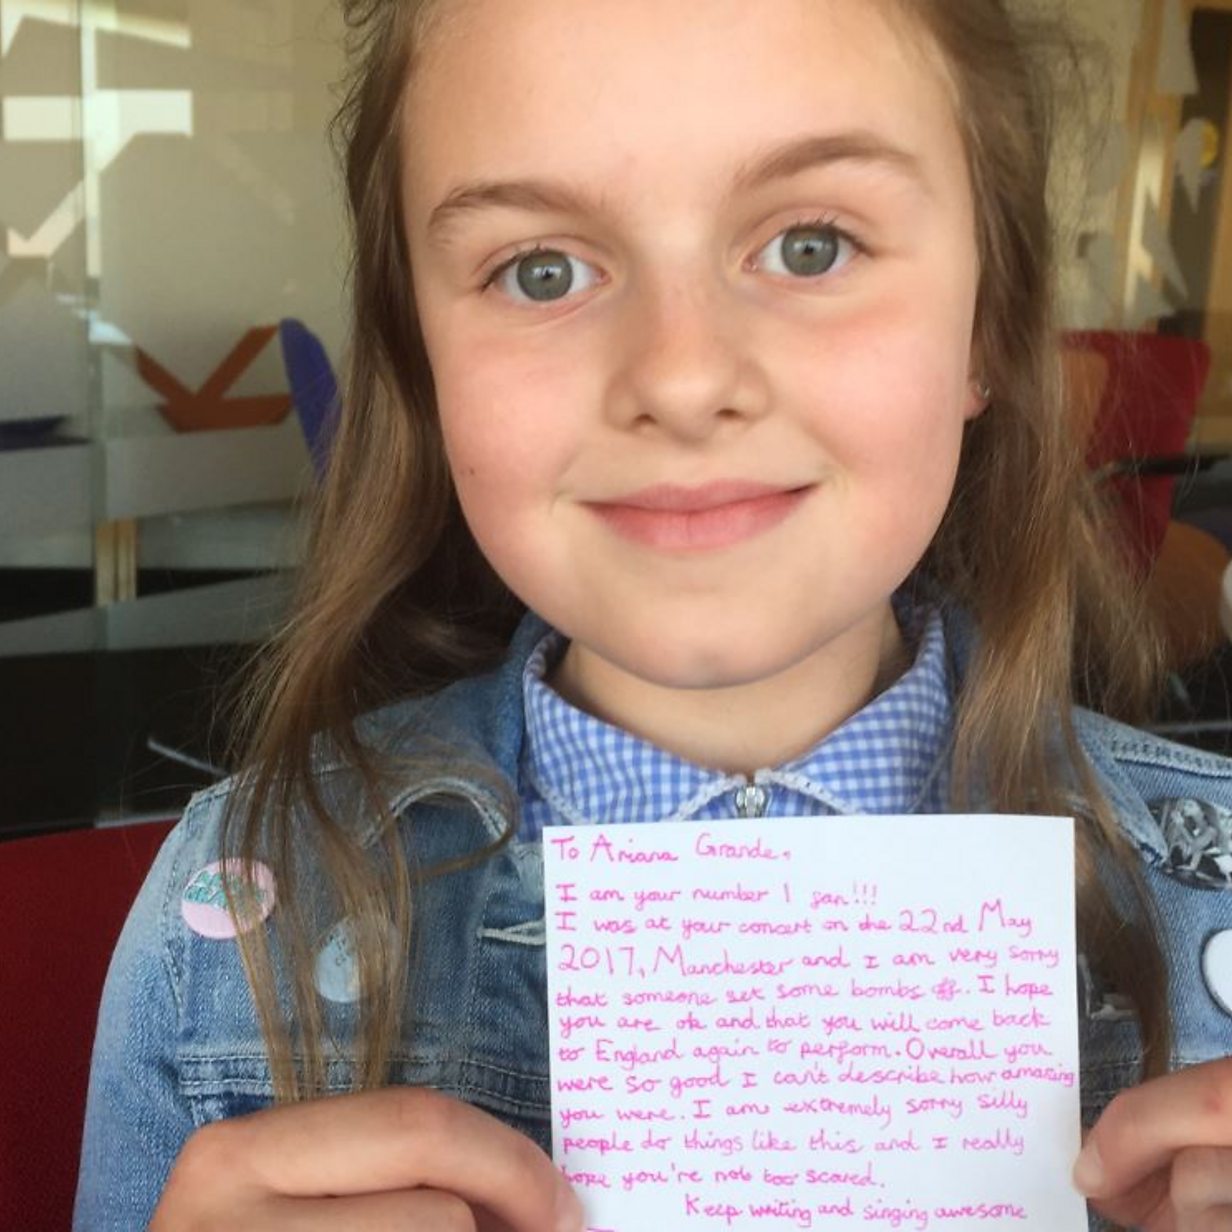 To Ariana Grande,
I am your number 1 fan!!!
I was at your concert on the 22nd May
2017, Manchester and I am very sorry
that someone set some bombs off. I hope
you are ok and that you will come back
to England again to perform. Overall you
were so good I can't describe how amazing
you were. I am extremely sorry silly
people do things like this and I really
hope you're not too scared.
Keep writing and singing awesome